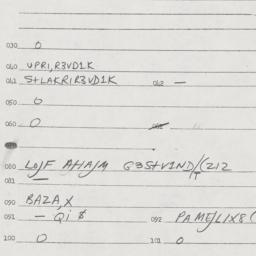 030 0
040 UPRI,R3VD1K
041 S+LAKRIR3VD1K 042 —
050 0
060 0
080 LOJF AHAJM G3S+V1ND/(212
081 —
090 BAZA,X
091 — QI $ 092 PAMEJLIX8(
100 0 101 0